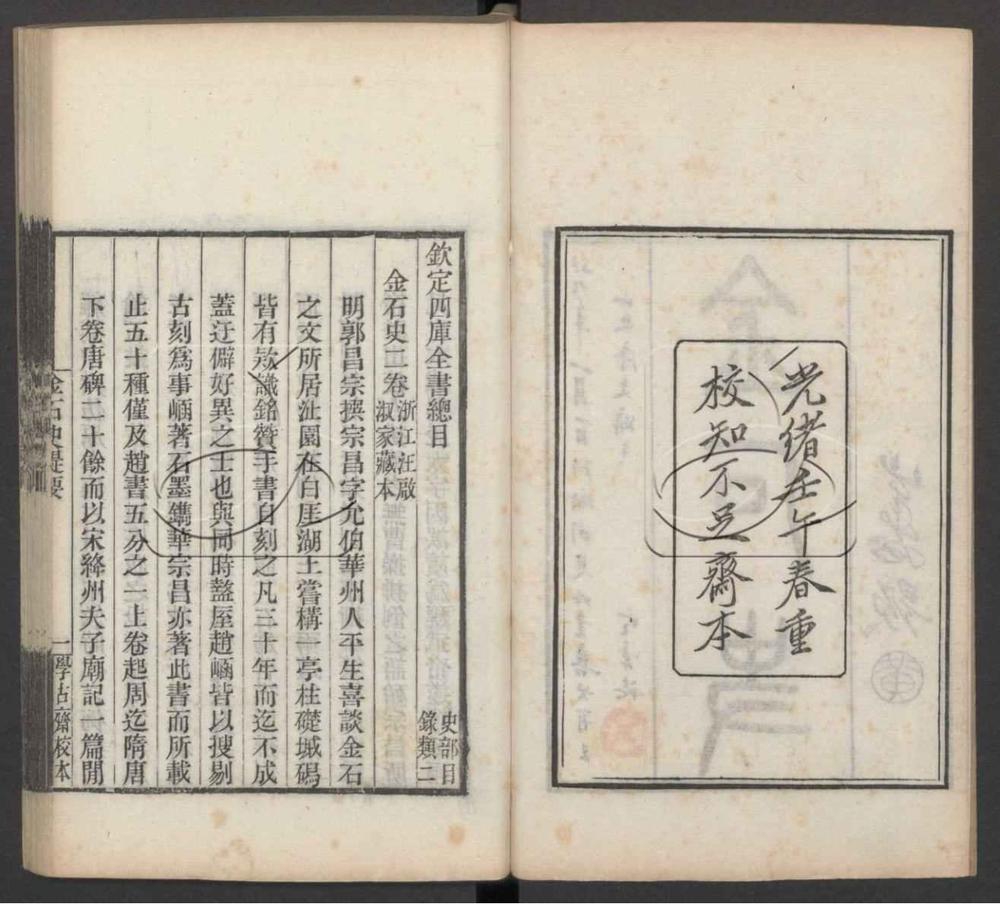 光緒壬午春重
校知不足齋本
欽定四庫全書總目
史部目
錄類二
金石史二卷
浙江汪啟
淑家藏本
明郭昌宗撰宗昌字允伯華州人平生喜談金石
之文所居沚園在白厓湖上嘗構一亭柱礎城碣
皆有款識銘贊手書自刻之凡三十年而迄不成
蓋迂僻好異之士也與同時盩厔趙崡皆以搜剔
古刻爲事崡著石墨鐫華宗昌亦著此書而所載
止五十種僅及趙書五分之一上卷起周迄隋唐
下卷唐碑二十餘而以宋絳州夫子廟記一篇閒
金石史提要
一
學古齋校本